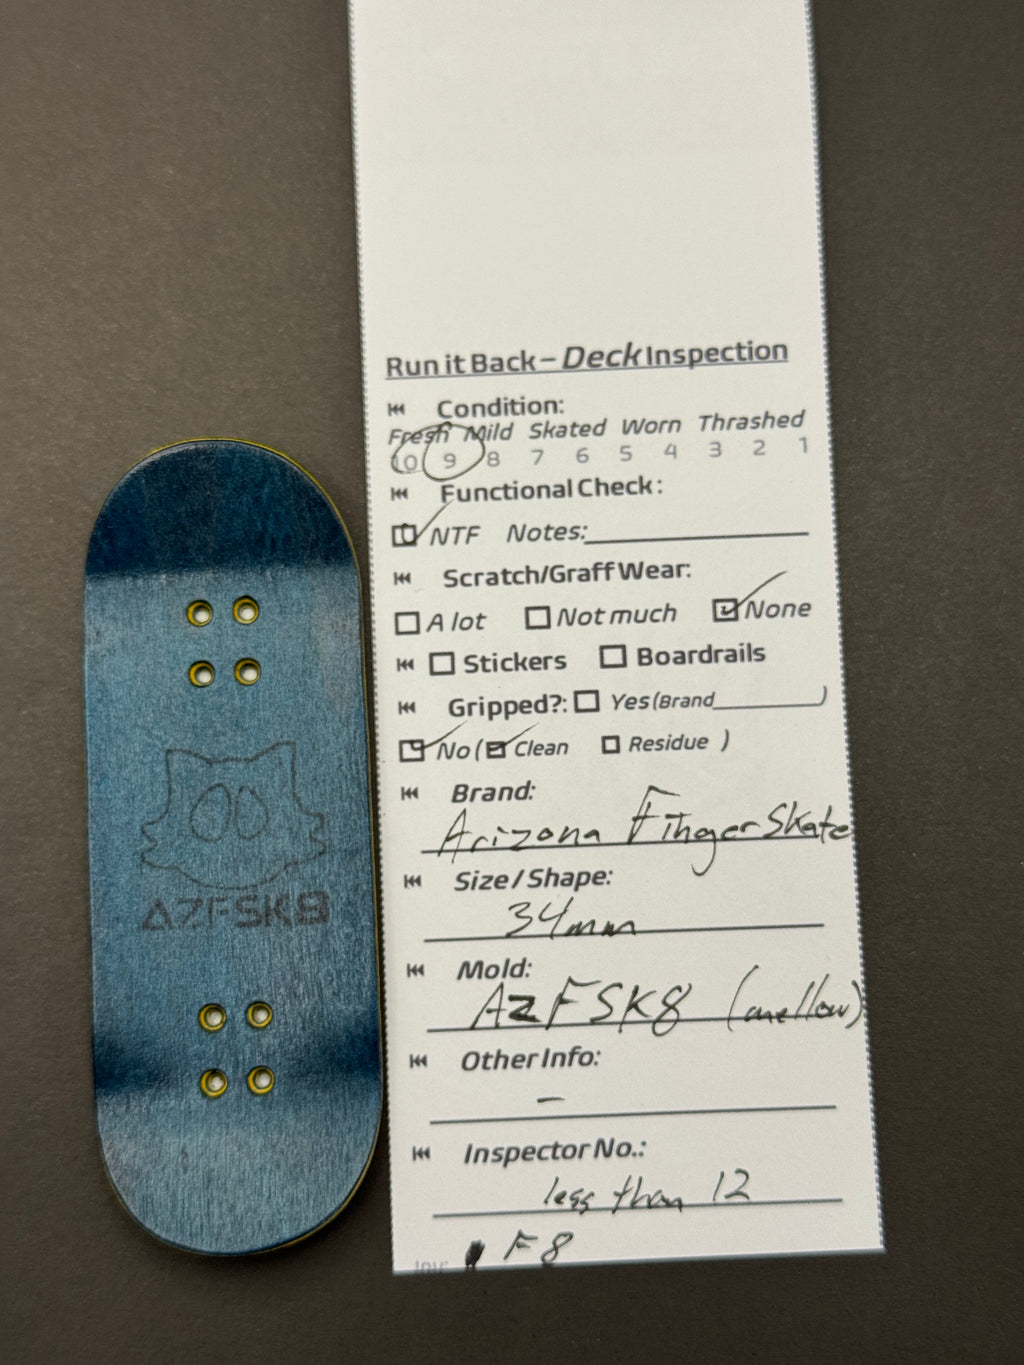 Run it Back – Deck Inspection
Condition:
Fresh Mild Skated Worn Thrashed
10 9 8 7 6 5 4 3 2 1
Functional Check:
NTF Notes:
Scratch/Graff Wear:
A lot Not much None
Stickers Boardrails
Gripped?: Yes (Brand )
No ( Clean Residue )
Brand:
Arizona FingerSkate
Size / Shape:
34mm
Mold:
AZFSK8 (mellow)
Other Info:
–
Inspector No.:
less than 12
Inv: F8
AZFSK8